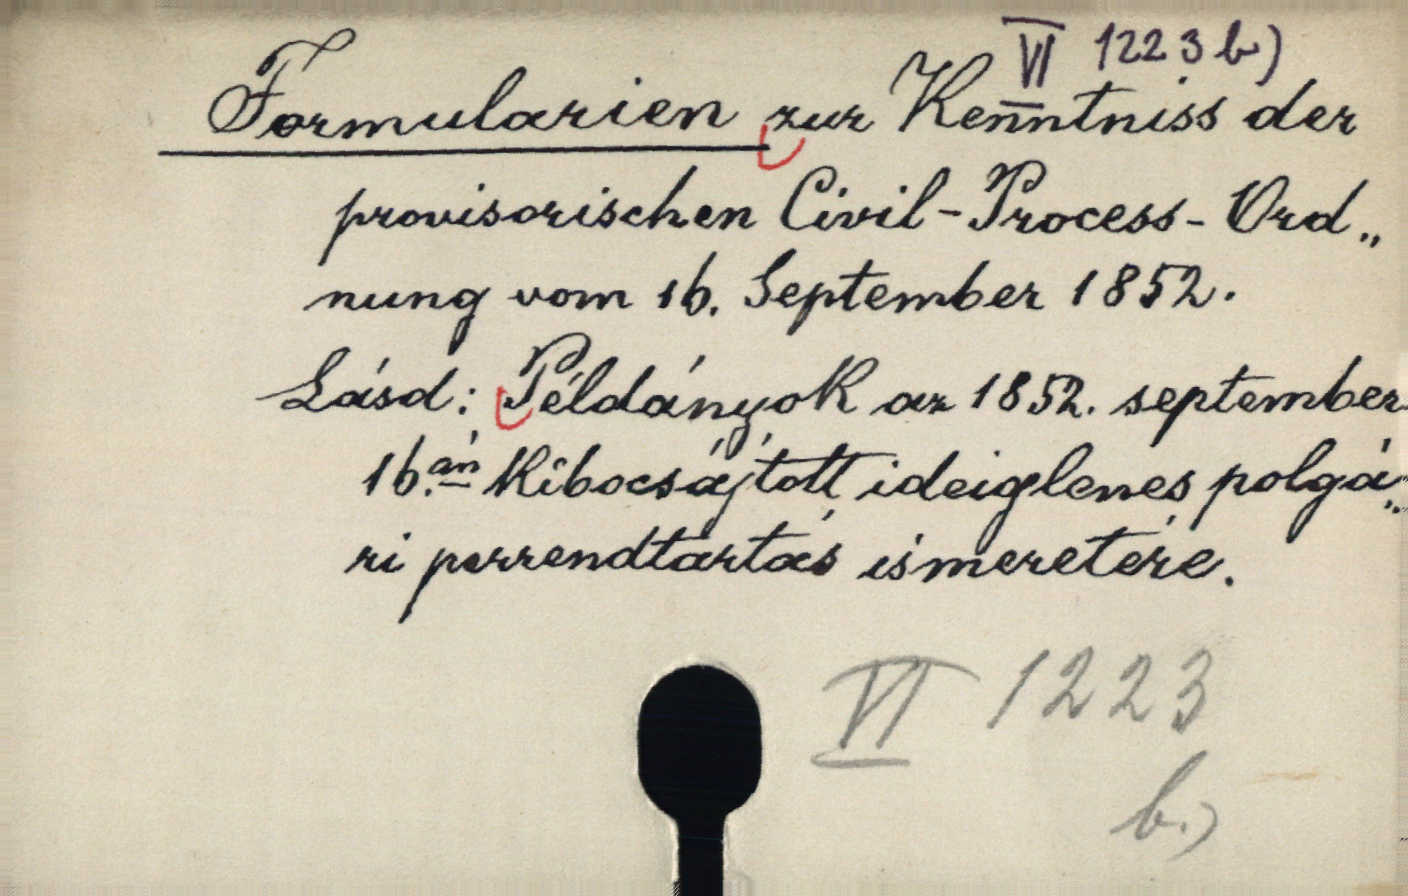 VI 1223 b)
Formularien zur Kenntniss der
provisorischen Civil-Process-Ord„
nung vom 16. September 1852.
Lásd: Példányok az 1852. september
16.án kibocsájtott ideiglenes polgá„
ri perrendtartás ismeretére.
VI 1223
b.)